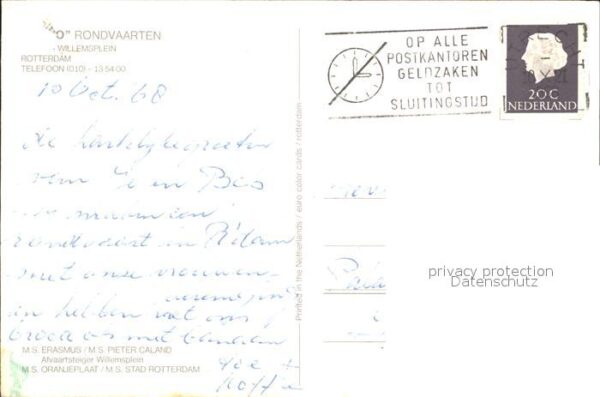 "O" RONDVAARTEN
WILLEMSPLEIN
ROTTERDAM
TELEFOON (010) - 13 54 00
10 Oct. 68
De hartelijke groeten
van Jo en Bas
rondvaart in R'dam
met onze vrouwen
vereniging
en hebben wat ons
brood op met
koffie
M.S. ERASMUS / M.S. PIETER CALAND
Afvaartsteiger Willemsplein
M.S. ORANJEPLAAT / M.S. STAD ROTTERDAM
Printed in the Netherlands / euro color cards / rotterdam
OP ALLE
POSTKANTOREN
GELDZAKEN
TOT
SLUITINGSTIJD
20 C
NEDERLAND
privacy protection
Datenschutz